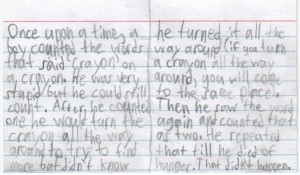 Once upon a time, a
boy counted the words
that said "crayon" on
a crayon. He was very
stupid but he could still
count. After he counted
one he would turn the
crayon all the way
around to try to find
more but didn't know
he turned it all the
way around (if you turn
a crayon all the way
around, you will come
to the same place.
Then he saw the word
again and counted that
as two. He repeated
that till he died of
hunger. That didn't happen.